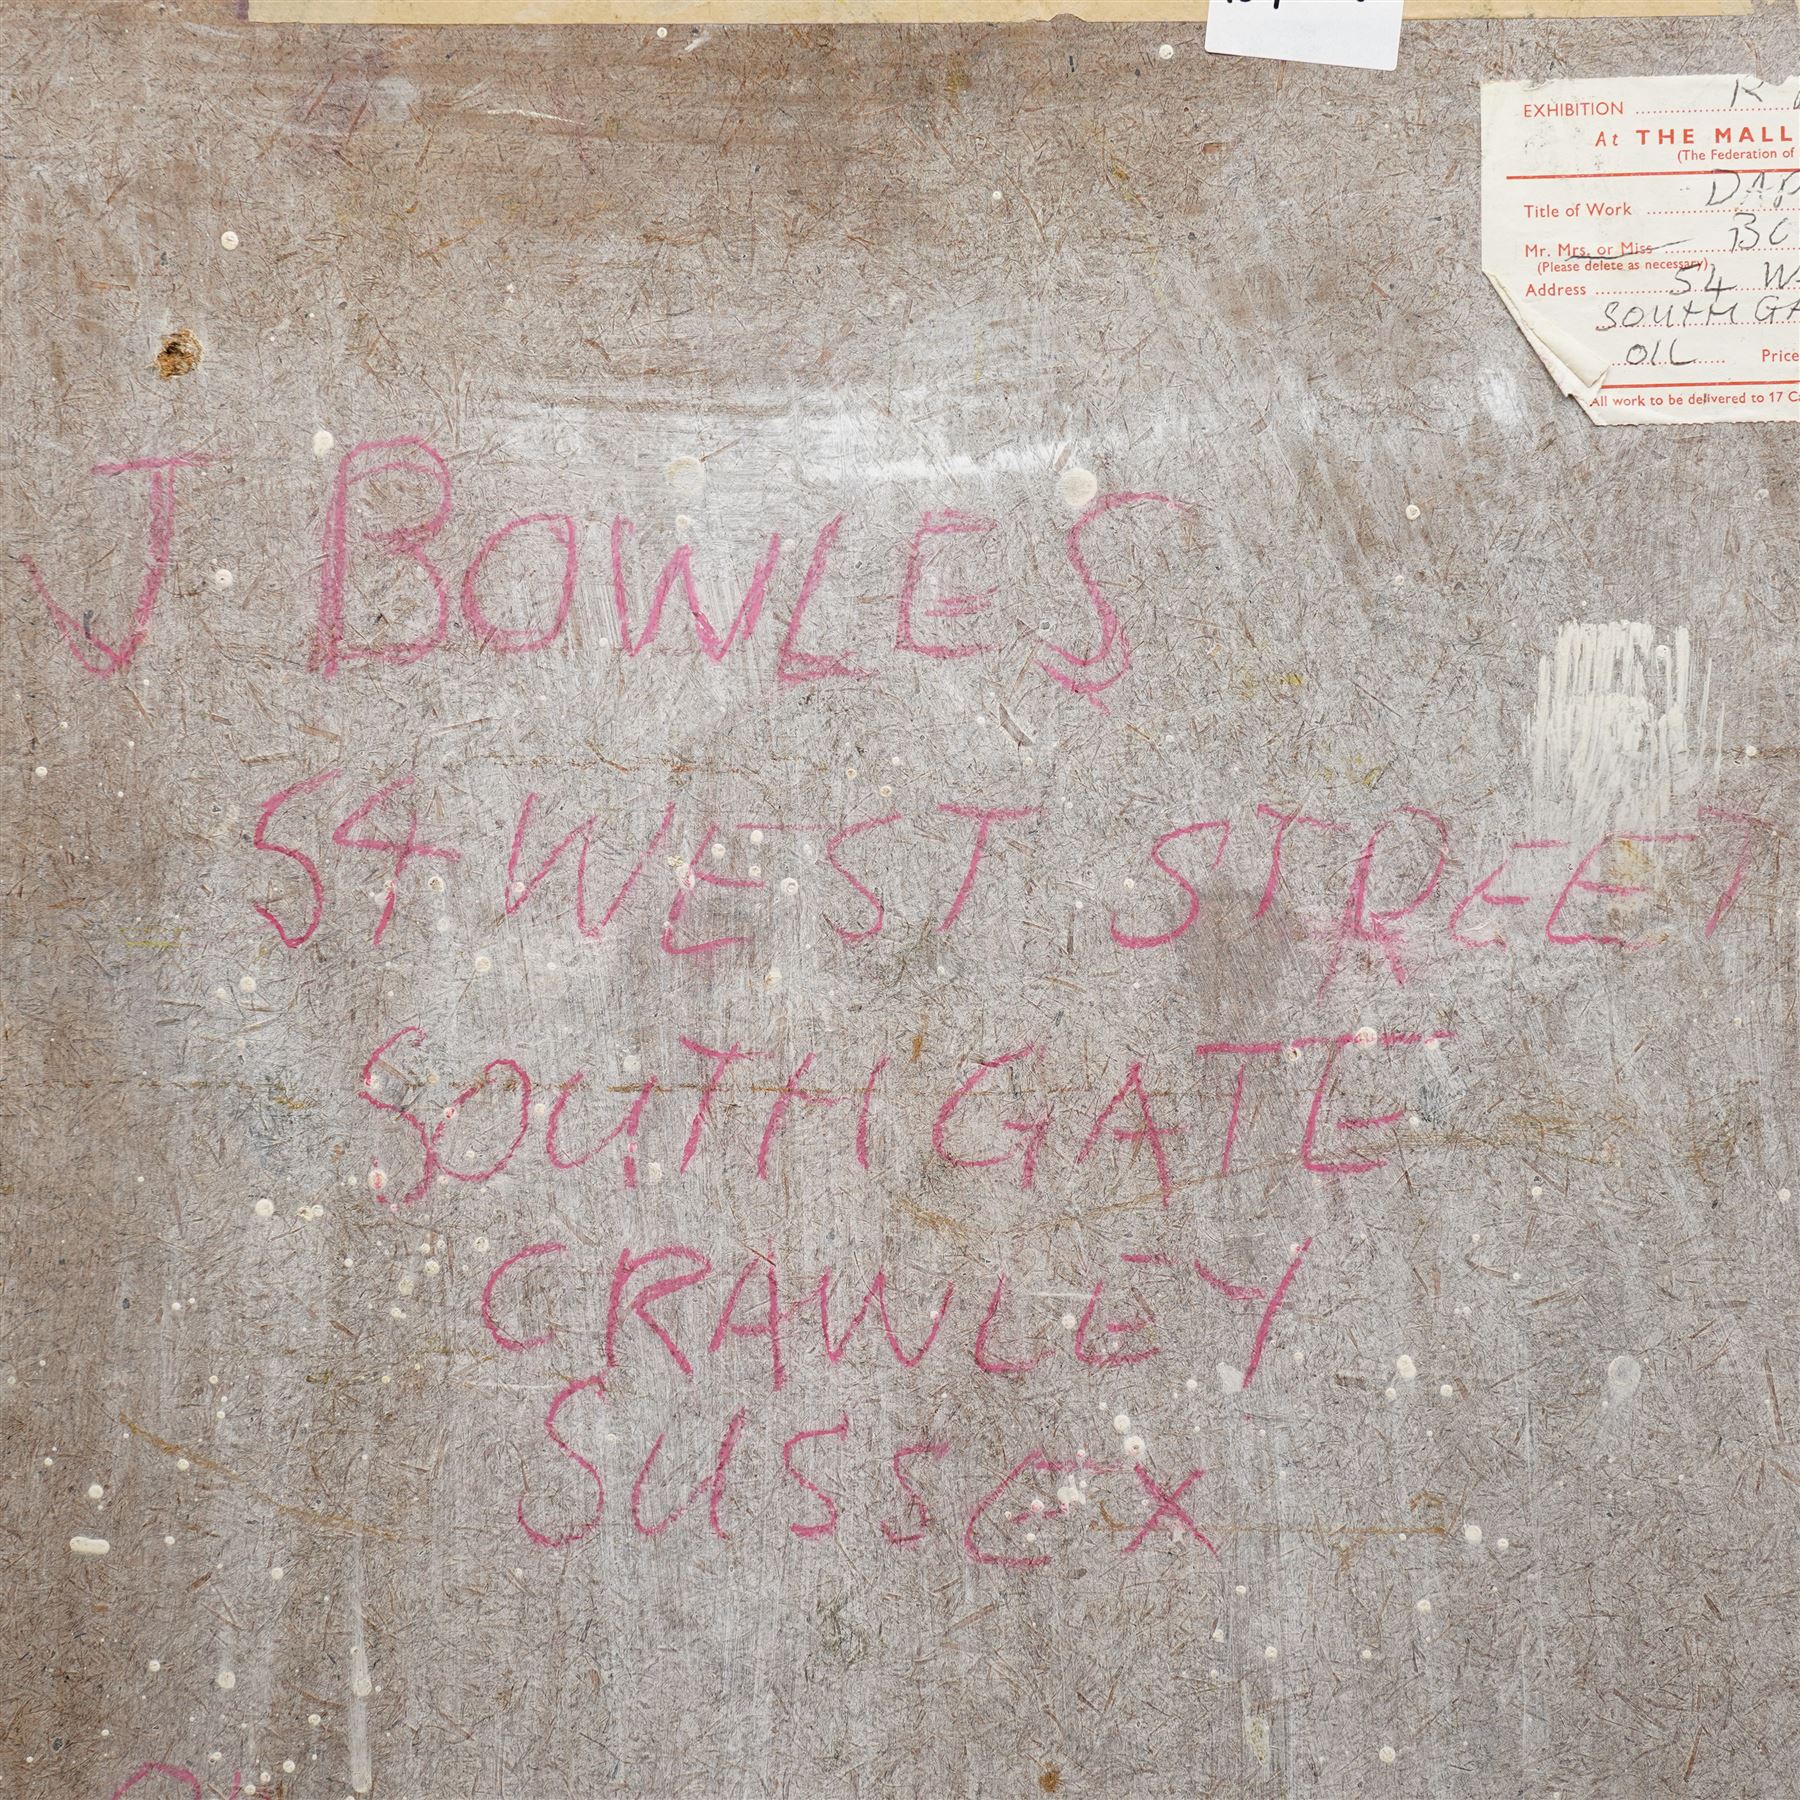 EXHIBITION
At THE MALL
(The Federation of
Title of Work
Mr. Mrs. or Miss
(Please delete as necessary)
Address 54
SOUTH
OIL Price
All work to be delivered to 17
J BOWLES
54 WEST STREET
SOUTHGATE
CRAWLEY
SUSSEX